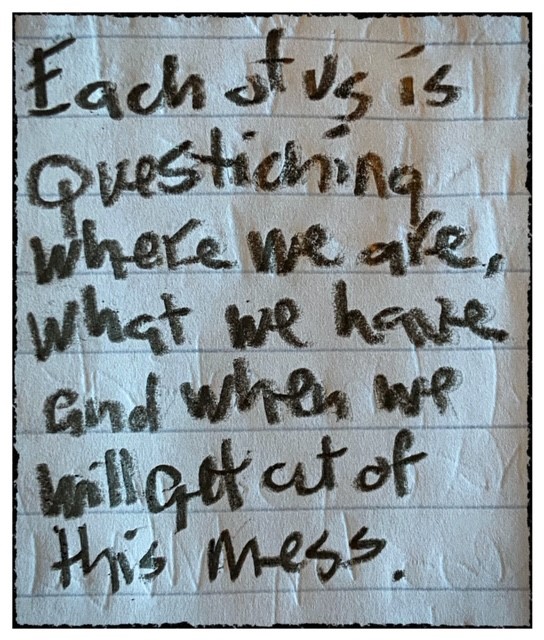 Each of us is
Questioning
where we are,
what we have
and when we
will get out of
this mess.